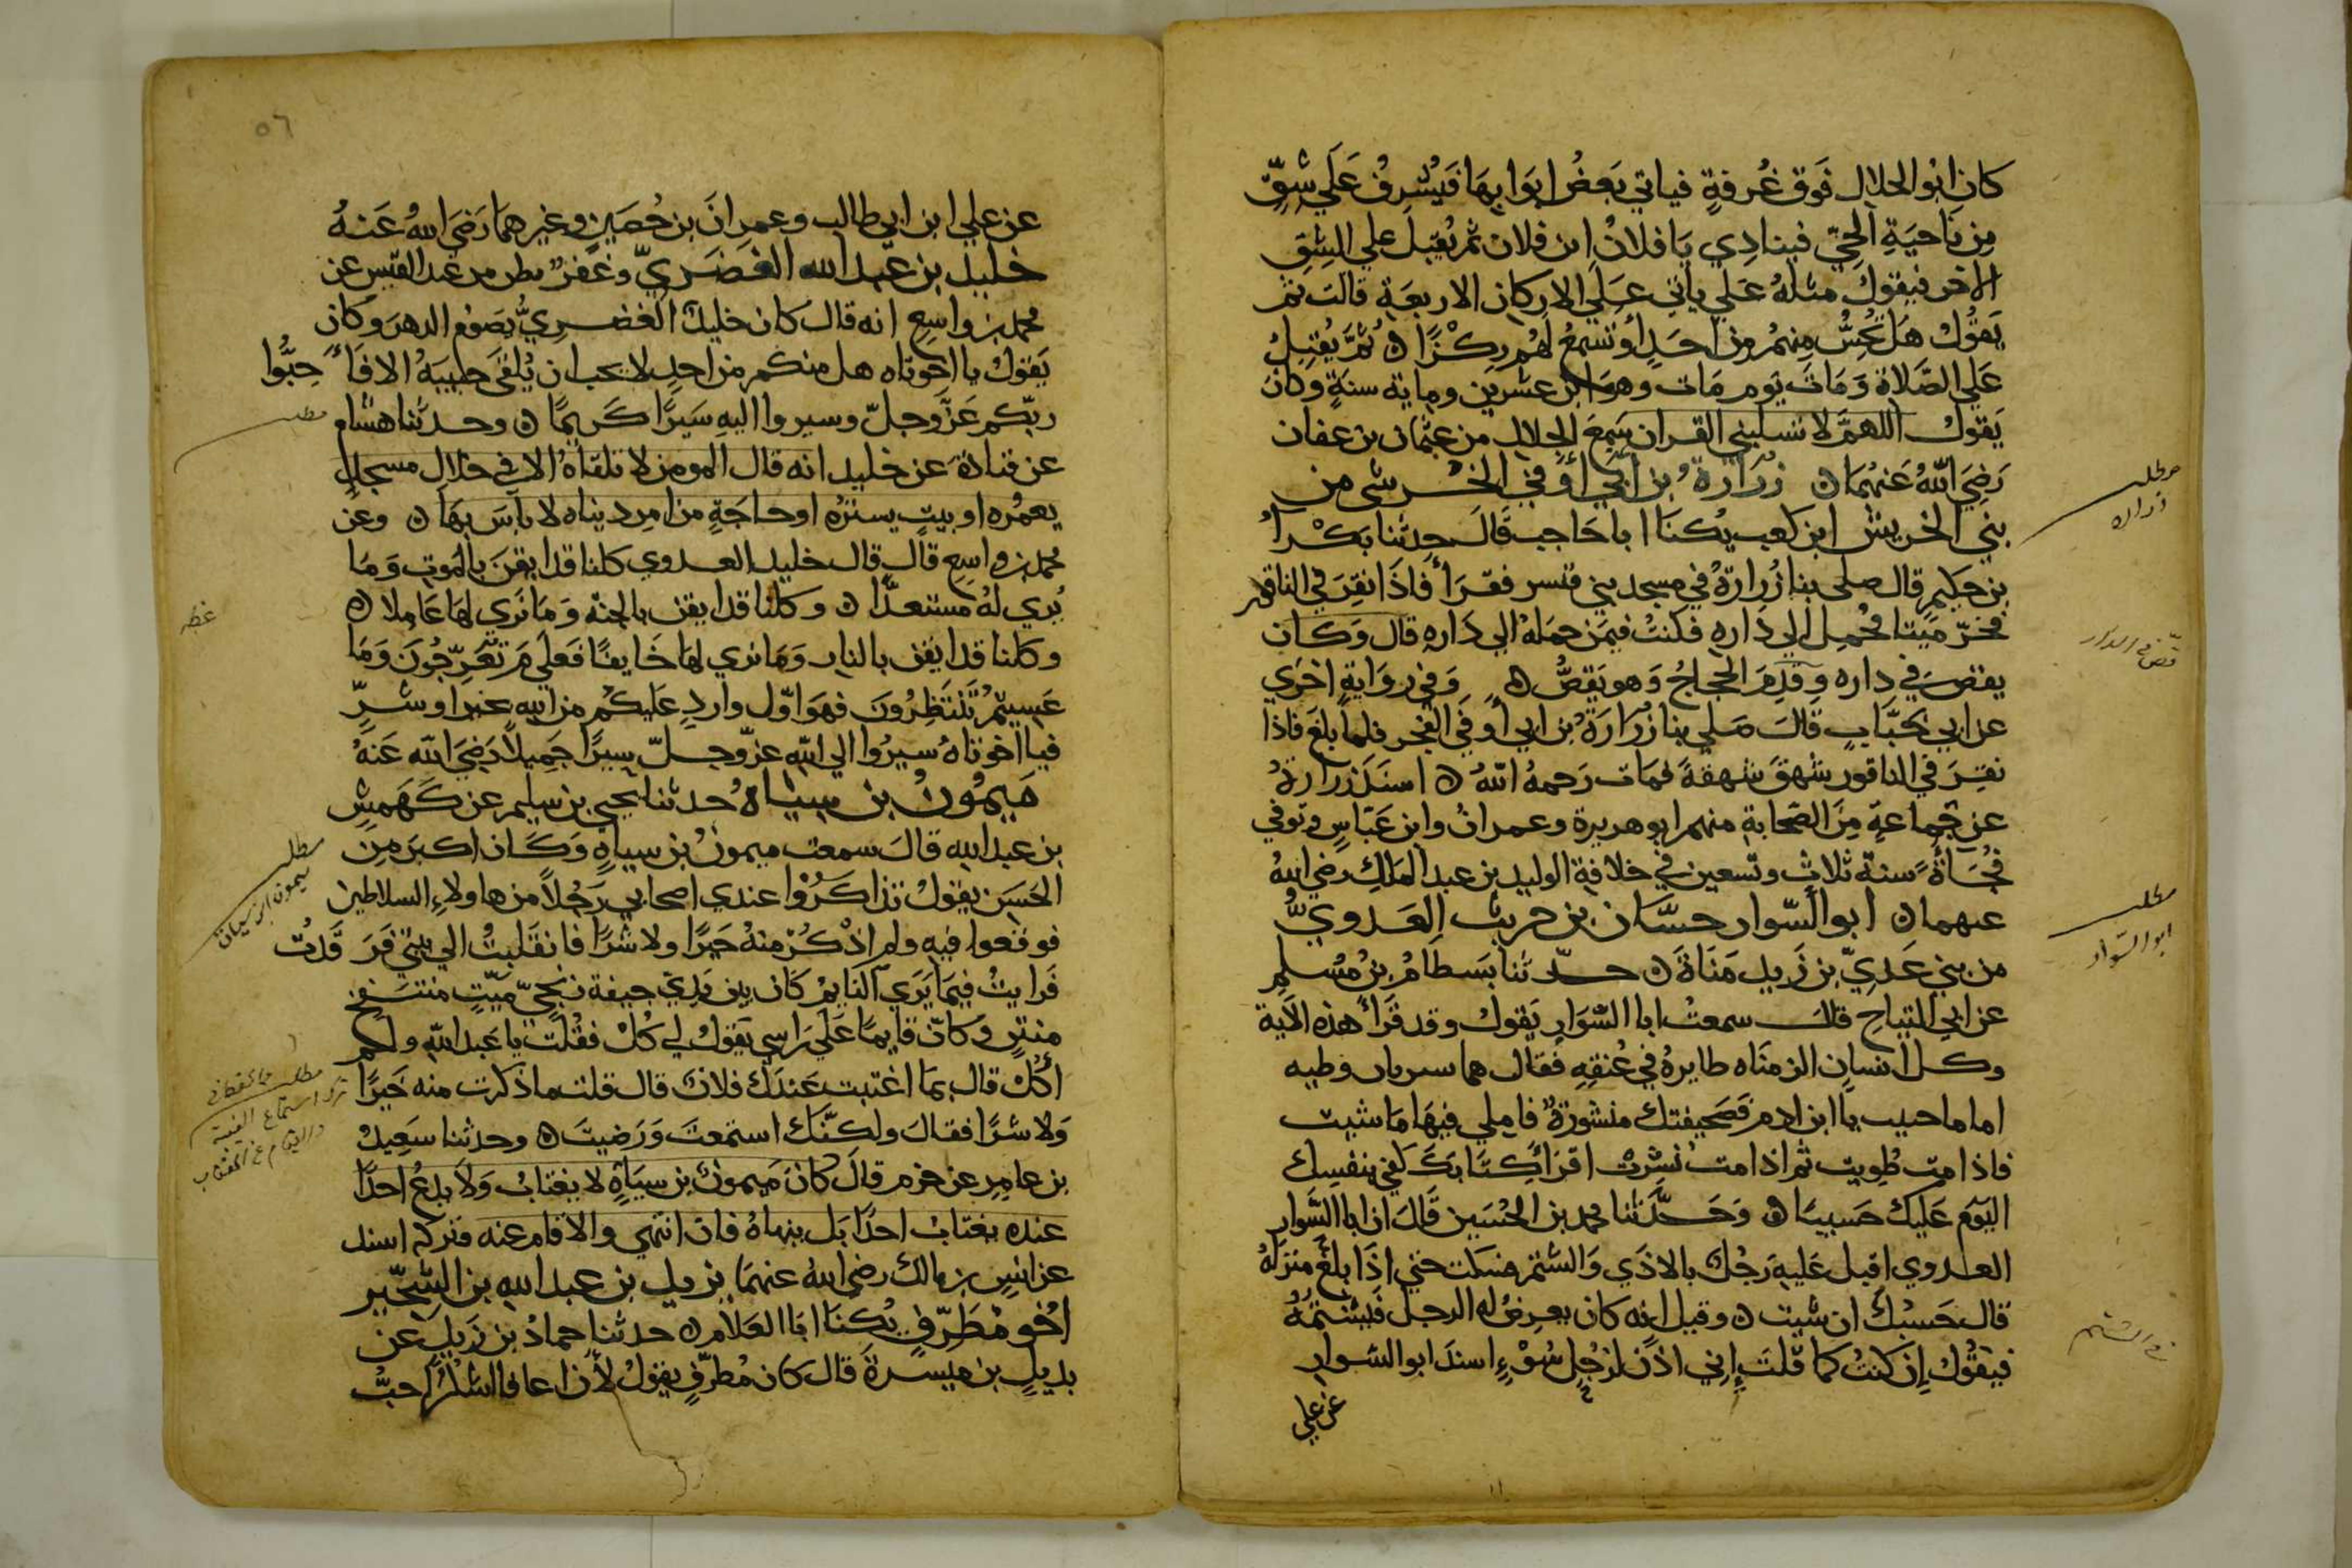 كان ابو الحلال فوق غرفةٍ فياتي بعض ابوابها فيشرف علي شقّ
من ناحية الحيّ فينادي يا فلان ابن فلان ثم يقبل علي الشق
الاخر فيقول مثله علي ياتي علي الاركان الاربعة قالت ثم
يقول هل تحسّ منهم من احدٍ او تسمع لهم ركزًا ه ثم يقبل
علي الصلاة ومات يوم مات وهو ابن عشرين وماية سنةٍ وكان
يقول اللهمّ لا تسلبني القران سمع الحلال من عثمان بن عفان
رضي الله عنهما ه زرارة بن ابي اوفي الخرشى من
بني الخريش ابن كعب يكنا ابا حاجب قال حدثنا بكر
بن حكيم قال صلى بنا زرارة في مسجد بني قشير فقرا فاذا نقر في الناقور
فخرّ ميتا فحُمل الي داره فكنت فيمن حمله الي داره قال وكان
يقص في داره وقدم الحجاج وهو يقصّ ه وفي رواية اخري
عن ابي خبّاب قال صلي بنا زرارة بن ابي اوفي الفجر فلما بلغ فاذا
نقر في الناقور شهق شهقة فمات رحمه الله ه اسند زرارة
عن جماعةٍ من الصحابة منهم ابو هريرة وعمران وابن عباس وتوفي
فجاةً سنة ثلاث وتسعين في خلافة الوليد بن عبد الملك رضي الله
عنهما ه ابو السّوار حسّان بن حريث العدويّ
من بني عديّ بن زيد مناة ه حدّثنا بسطام بن مسلم
عن ابي التياح قال سمعت ابا السّوار يقول وقد قرا هذه الاية
وكل انسان الزمناه طايره في عنقه فقال هما نشرتان وطيه
اما ما حييت يا ابن ادم فصحيفتك منشورة فاملي فيها ما شيت
فاذا مت طويت ثم اذا مت نشرت اقرا كتابك كفي بنفسك
اليوم عليك حسيبا ه وحدّثنا محمد بن الحسين قال ان ابا السّوار
العدوي اقبل عليه رجل بالاذي والشتم فسكت حتي اذا بلغ منزله
قال حسبك ان شيت ه وقيل انه كان يعرض له الرجل فيشتمه
فيقول ان كنت كما قلت اني اذن لرجل سوءٍ اسند ابو السوار
عن علي
مطلب
زراره
قص في الدار
مطلب
ابو السّوار
في الشتم
٥٦
عن علي ابن ابي طالب وعمران بن حصين وغيرهما رضي الله عنه
خليد بن عبد الله العصري وعصر بطن من عبد القيس عن
محمد بن واسع انه قال كان خليد العصري يصوم الدهر وكان
يقول يا اخوتاه هل منكم من احدٍ لا يحب ان يلقي حبيبه الا فاحبّوا
ربّكم عزّ وجلّ وسيروا اليه سيرًا كريمًا ه وحدثنا هشام
عن قتادة عن خليد انه قال المومن لا تلقاه الا في خلال مسجد
يعمره او بيت يستره او حاجةٍ من امر دنياه لا باس بها ه وعن
محمد بن واسع قال قال خليد العدوي كلنا قد ايقن بالموت وما
نري له مستعدًّا ه وكلنا قد ايقن بالجنة وما نري لها عاملا ه
وكلنا قد ايقن بالنار وما نري لها خايفًا فعلي م تعرّجون وما
عسيتم تنتظرون فهو اوّل وارد عليكم من الله بخير او شرّ
فيا اخوتاه سيروا الي الله عز وجلّ سيرًا جميلاً رضي الله عنه
ميمون بن سياه حدثنا يحيي بن سليم عن كهمس
بن عبد الله قال سمعت ميمون بن سياه وكان اكبر من
الحسن يقول تذاكروا عندي اصحابي رجلاً من هاولاءِ السلاطين
فوقعوا فيه ولم اذكر منه خيرًا ولا شرًا فانقلبت الي بيتي فرقدت
فرايت فيما يري النايم كان بين يدي جيفة زنجيّ ميّت منتفخ
منتن وكانّ قايمًا علي راسي يقول لي كل فقلت يا عبد الله ولم
آكل قال بما اغتبت عندك فلان قال قلت ما ذكرت منه خيرًا
ولا شرًا فقال ولكنّك استمعت ورضيت ه وحدثنا سعيد
بن عامر عن حزم قال كان ميمون بن سياه لا يغتاب ولا يدع احدًا
عنده يغتاب احدًا بل ينهاه فان انتهي والا قام عنه فتركه اسند
عن انس بن مالك رضي الله عنهما يزيد بن عبد الله بن الشخّير
اخو مطرّف يكنا ابا العلاء ه حدثنا حماد بن زيد عن
بديل بن ميسرة قال كان مطرّف يقول لأن اعافا اشكر احبّ
مطلب
عظه
مطلب
ميمون ابن سياه
مطلب
ترك استماع الغيبة
والقيام عن المغتاب